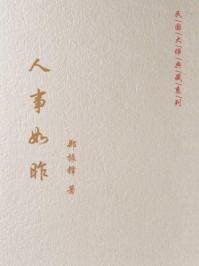 民国大师典藏系列
郑振铎 著
人事如昨